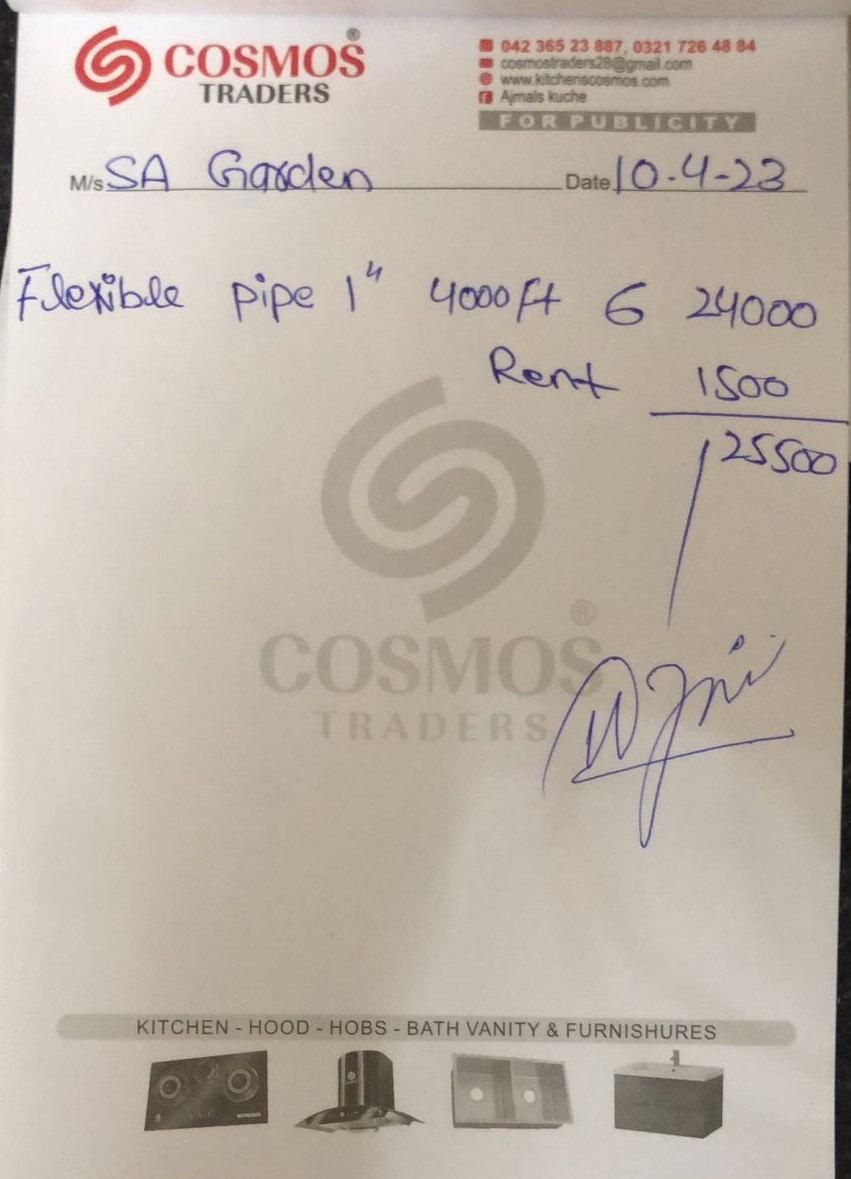 COSMOS®
TRADERS
042 365 23 887, 0321 726 48 84
cosmostraders28@gmail.com
www.kitchenscosmos.com
Ajmals kuche
FOR PUBLICITY
M/s SA Garden Date 10-4-23
Flexible pipe 1" 4000ft 6 24000
Rent 1500
25500
COSMOS®
TRADERS
KITCHEN - HOOD - HOBS - BATH VANITY & FURNISHURES